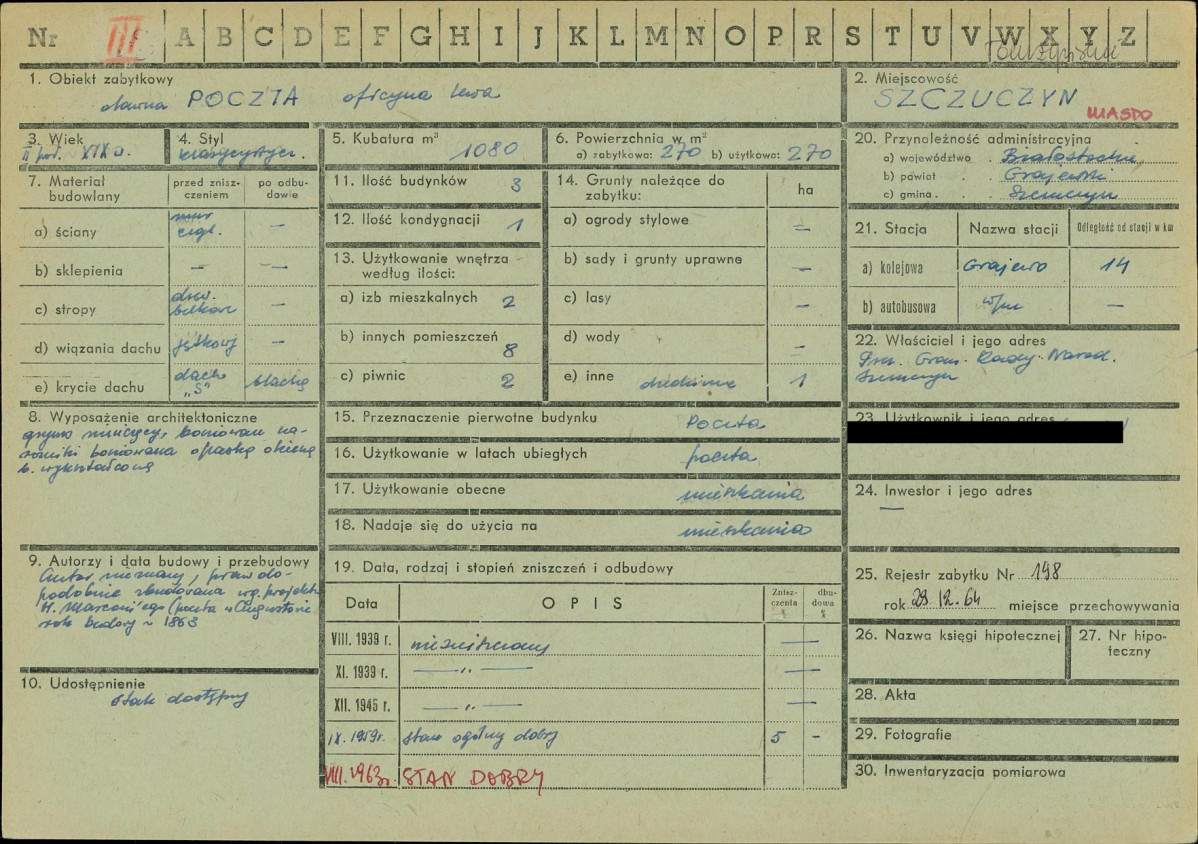 Nr III A B C D E F G H I J K L M N O P R S T U V W X Y Z
1. Obiekt zabytkowy
dawna POCZTA oficyna lewa
2. Miejscowość
SZCZUCZYN
MIASTO
3. Wiek
II poł. XIX w.
4. Styl
klasycystycz.
5. Kubatura m³
1080
6. Powierzchnia w m²
a) zabytkowa: 270 b) użytkowa: 270
20. Przynależność administracyjna
a) województwo . Białostockie
b) powiat . . Grajewski
c) gmina . . Szczuczyn
7. Materiał budowlany
przed znisz-
czeniem
po odbu-
dowie
a) ściany
mur
cegl. —
b) sklepienia — —
c) stropy drew.
belkow. —
d) wiązania dachu jętkowy —
e) krycie dachu dach.
„S" blachą
11. Ilość budynków 3
12. Ilość kondygnacji 1
13. Użytkowanie wnętrza
według ilości:
a) izb mieszkalnych 2
b) innych pomieszczeń 8
c) piwnic 2
14. Grunty należące do
zabytku:
ha
a) ogrody stylowe —
b) sady i grunty uprawne —
c) lasy —
d) wody —
e) inne dziedziniec 1
21. Stacja Nazwa stacji Odległość od stacji w km
a) kolejowa Grajewo 14
b) autobusowa w/m —
22. Właściciel i jego adres
Prez. Grom. Rady Narod.
Szczuczyn
8. Wyposażenie architektoniczne
gzyms wieńczący, boniowane na-
rożniki boniowana opaska okienna
15. Przeznaczenie pierwotne budynku Poczta
16. Użytkowanie w latach ubiegłych poczta
17. Użytkowanie obecne mieszkania
18. Nadaje się do użycia na mieszkania
23. Użytkownik i jego adres
24. Inwestor i jego adres
—
9. Autorzy i data budowy i przebudowy
Autor nieznany, prawdo-
podobnie zbudowana wg. projektu
H. Marconi'ego (poczta w Augustowie
rok budowy ~ 1863
10. Udostępnienie
stale dostępny
19. Data, rodzaj i stopień zniszczeń i odbudowy
Data OPIS Znisz-
czenia
% dbu-
dowa
%
VIII. 1939 r. niezniszczony —
XI. 1939 r. — „ — —
XII. 1945 r. — „ — —
IX. 1959 r. stan ogólny dobry 5 -
VIII. 1963 r. STAN DOBRY
25. Rejestr zabytku Nr 198
rok 29.12.64 miejsce przechowywania
26. Nazwa księgi hipotecznej
27. Nr hipo-
teczny
28. Akta
29. Fotografie
30. Inwentaryzacja pomiarowa